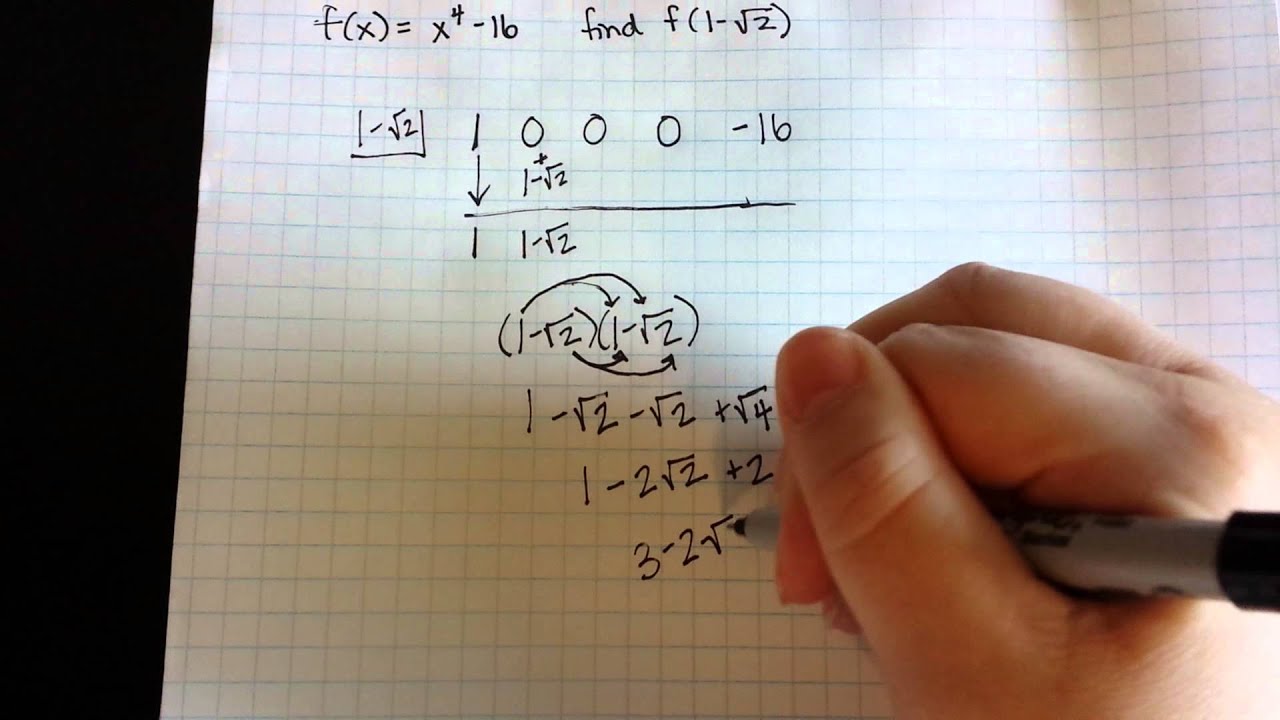 f(x) = x⁴ - 16 find f(1-√2)
1-√2 1 0 0 0 -16
+
1-√2
1 1-√2
(1-√2)(1-√2)
1 - √2 - √2 + √4
1 - 2√2 + 2
3 - 2√